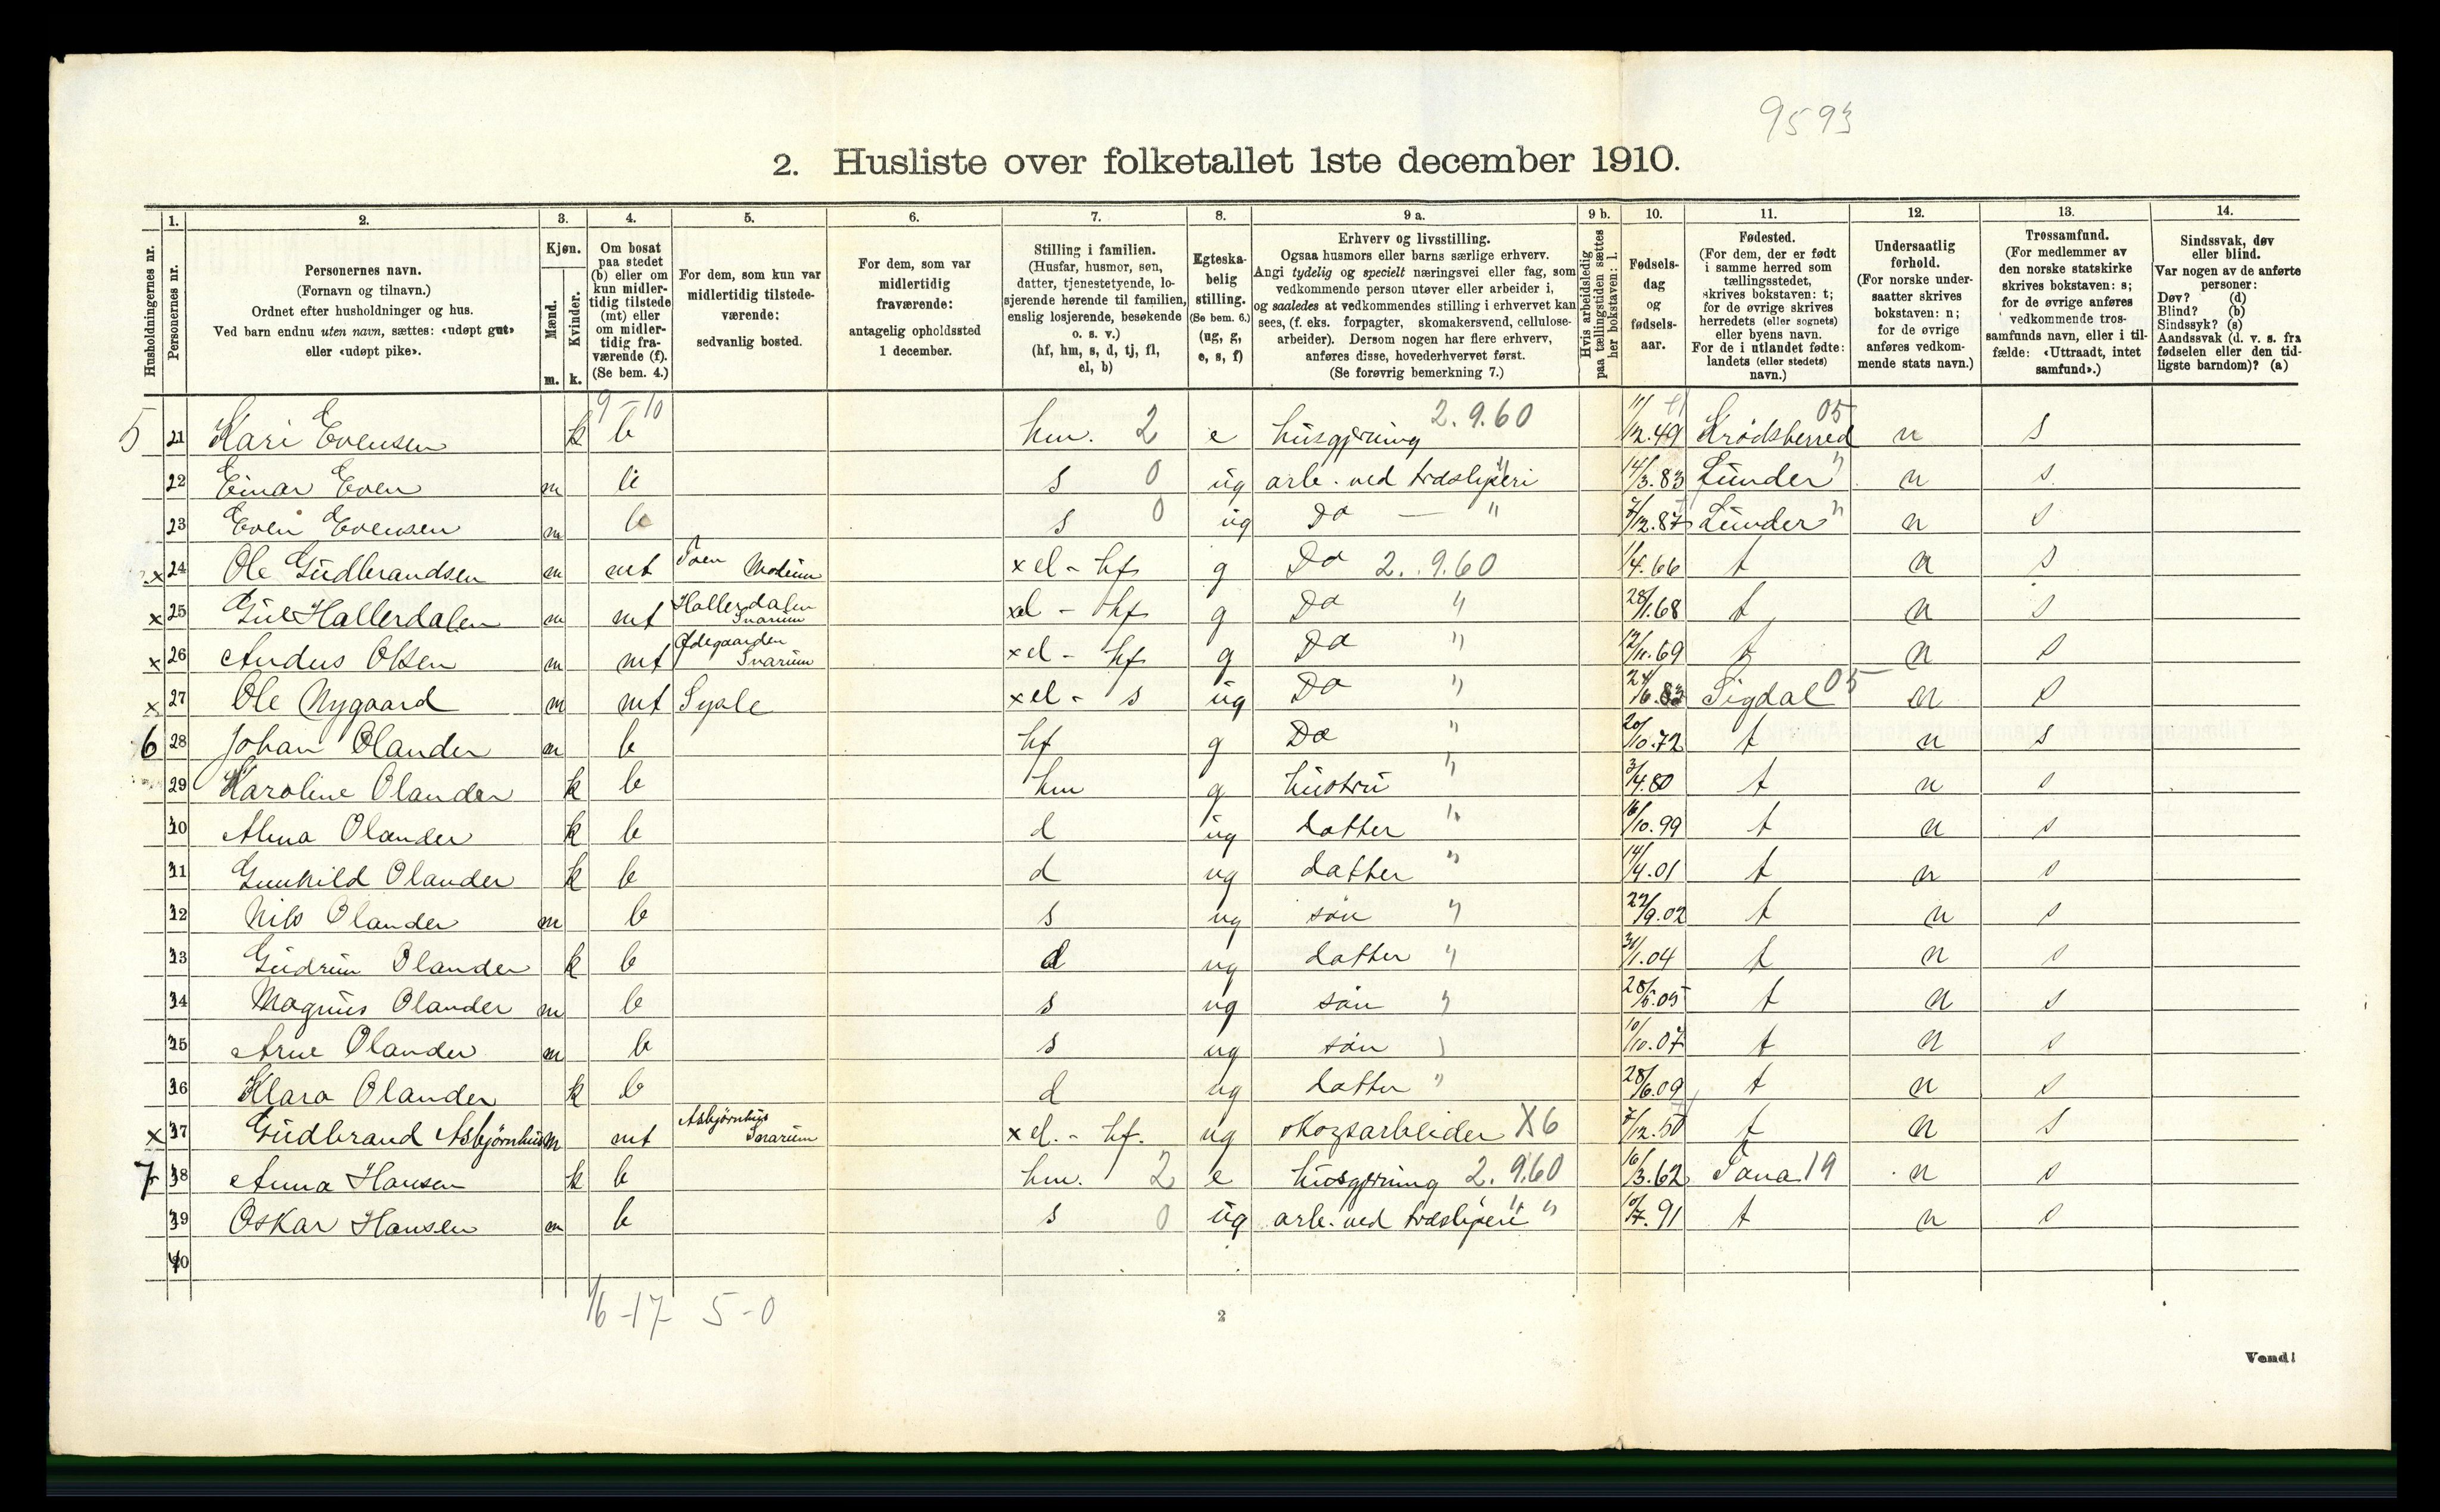 9593
2. Husliste over folketallet 1ste december 1910.
Husholdningernes nr.
1. Personernes nr.
2. Personernes navn. (Fornavn og tilnavn.) Ordnet efter husholdninger og hus. Ved barn endnu uten navn, sættes: «udøpt gut» eller «udøpt pike».
3. Kjøn. Mænd. m. Kvinder. k.
4. Om bosat paa stedet (b) eller om kun midlertidig tilstede (mt) eller om midlertidig fraværende (f). (Se bem. 4.)
5. For dem, som kun var midlertidig tilstedeværende: sedvanlig bosted.
6. For dem, som var midlertidig fraværende: antagelig opholdssted 1 december.
7. Stilling i familien. (Husfar, husmor, søn, datter, tjenestetyende, losjerende hørende til familien, enslig losjerende, besøkende o. s. v.) (hf, hm, s, d, tj, fl, el, b)
8. Egteskabelig stilling. (Se bem. 6.) (ug, g, e, s, f)
9 a. Erhverv og livsstilling. Ogsaa husmors eller barns særlige erhverv. Angi tydelig og specielt næringsvei eller fag, som vedkommende person utøver eller arbeider i, og saaledes at vedkommendes stilling i erhvervet kan sees, (f. eks. forpagter, skomakersvend, cellulosearbeider). Dersom nogen har flere erhverv, anføres disse, hovederhvervet først. (Se forøvrig bemerkning 7.)
9 b. Hvis arbeidsledig paa tællingstiden sættes her bokstaven: l.
10. Fødselsdag og fødselsaar.
11. Fødested. (For dem, der er født i samme herred som tællingsstedet, skrives bokstaven: t; for de øvrige skrives herredets (eller sognets) eller byens navn. For de i utlandet fødte: landets (eller stedets) navn.)
12. Undersaatlig forhold. (For norske undersaatter skrives bokstaven: n; for de øvrige anføres vedkommende stats navn.)
13. Trossamfund. (For medlemmer av den norske statskirke skrives bokstaven: s; for de øvrige anføres vedkommende trossamfunds navn, eller i tilfælde: «Uttraadt, intet samfund».)
14. Sindssvak, døv eller blind. Var nogen av de anførte personer: Døv? (d) Blind? (b) Sindssyk? (s) Aandssvak (d. v. s. fra fødselen eller den tidligste barndom)? (a)
9-10
5 21 Kari Evensen k b hm. 2 e husgjrning 2.9.60 11/12.49 Krødsherred 05 n s
22 Einar Even m b s 0 ug arb. ved træsliperi " 14/3.83 Lunder " n s
23 Even Evensen m b s 0 ug Do — " 7/12.87 Lunder " n s
x 24 Ole Gudbrandsen m mt Modum x el - hf g Do 2.9.60 1/4.66 t n s
x 25 Hallerdalen m mt Hallerdalen Snarum xel - hf g Do " 28/1.68 t n s
x 26 Andus Olsen m mt Ødegaarden Snarum xel - hf g Do " 12/11.69 t n s
x 27 Ole Nygaard m mt Sysle xel - s ug Do " 24/6.83 Sigdal 05 n s
6 28 Johan Olander m b hf g Do " 20/10.72 t n s
29 Karoline Olander k b hm g hustru " 3/4.80 t n s
30 Alma Olander k b d ug datter " 16/10.99 t n s
31 Gunhild Olander k b d ug datter " 14/4.01 t n s
32 Nils Olander m b s ug søn " 22/9.02 t n s
33 Gudrun Olander k b d ug datter " 31/1.04 t n s
34 Magnus Olander m b s ug søn " 28/5.05 t n s
35 Arne Olander m b s ug søn " 10/10.07 t n s
36 Klara Olander k b d ug datter " 28/6.09 t n s
x 37 Gudbrand Asbjørnhus m mt Asbjørnhus Snarum x el. - hf. ug skogsarbeider X6 7/12.50 t n s
7 38 Anna Hansen k b hm. 2 e husgjrning 2.9.60 16/3.62 Tana 19 n s
39 Oskar Hansen m b s 0 ug arb. ved træsliperi " 10/7.91 t n s
40
16-17 5-0
2
Vend!